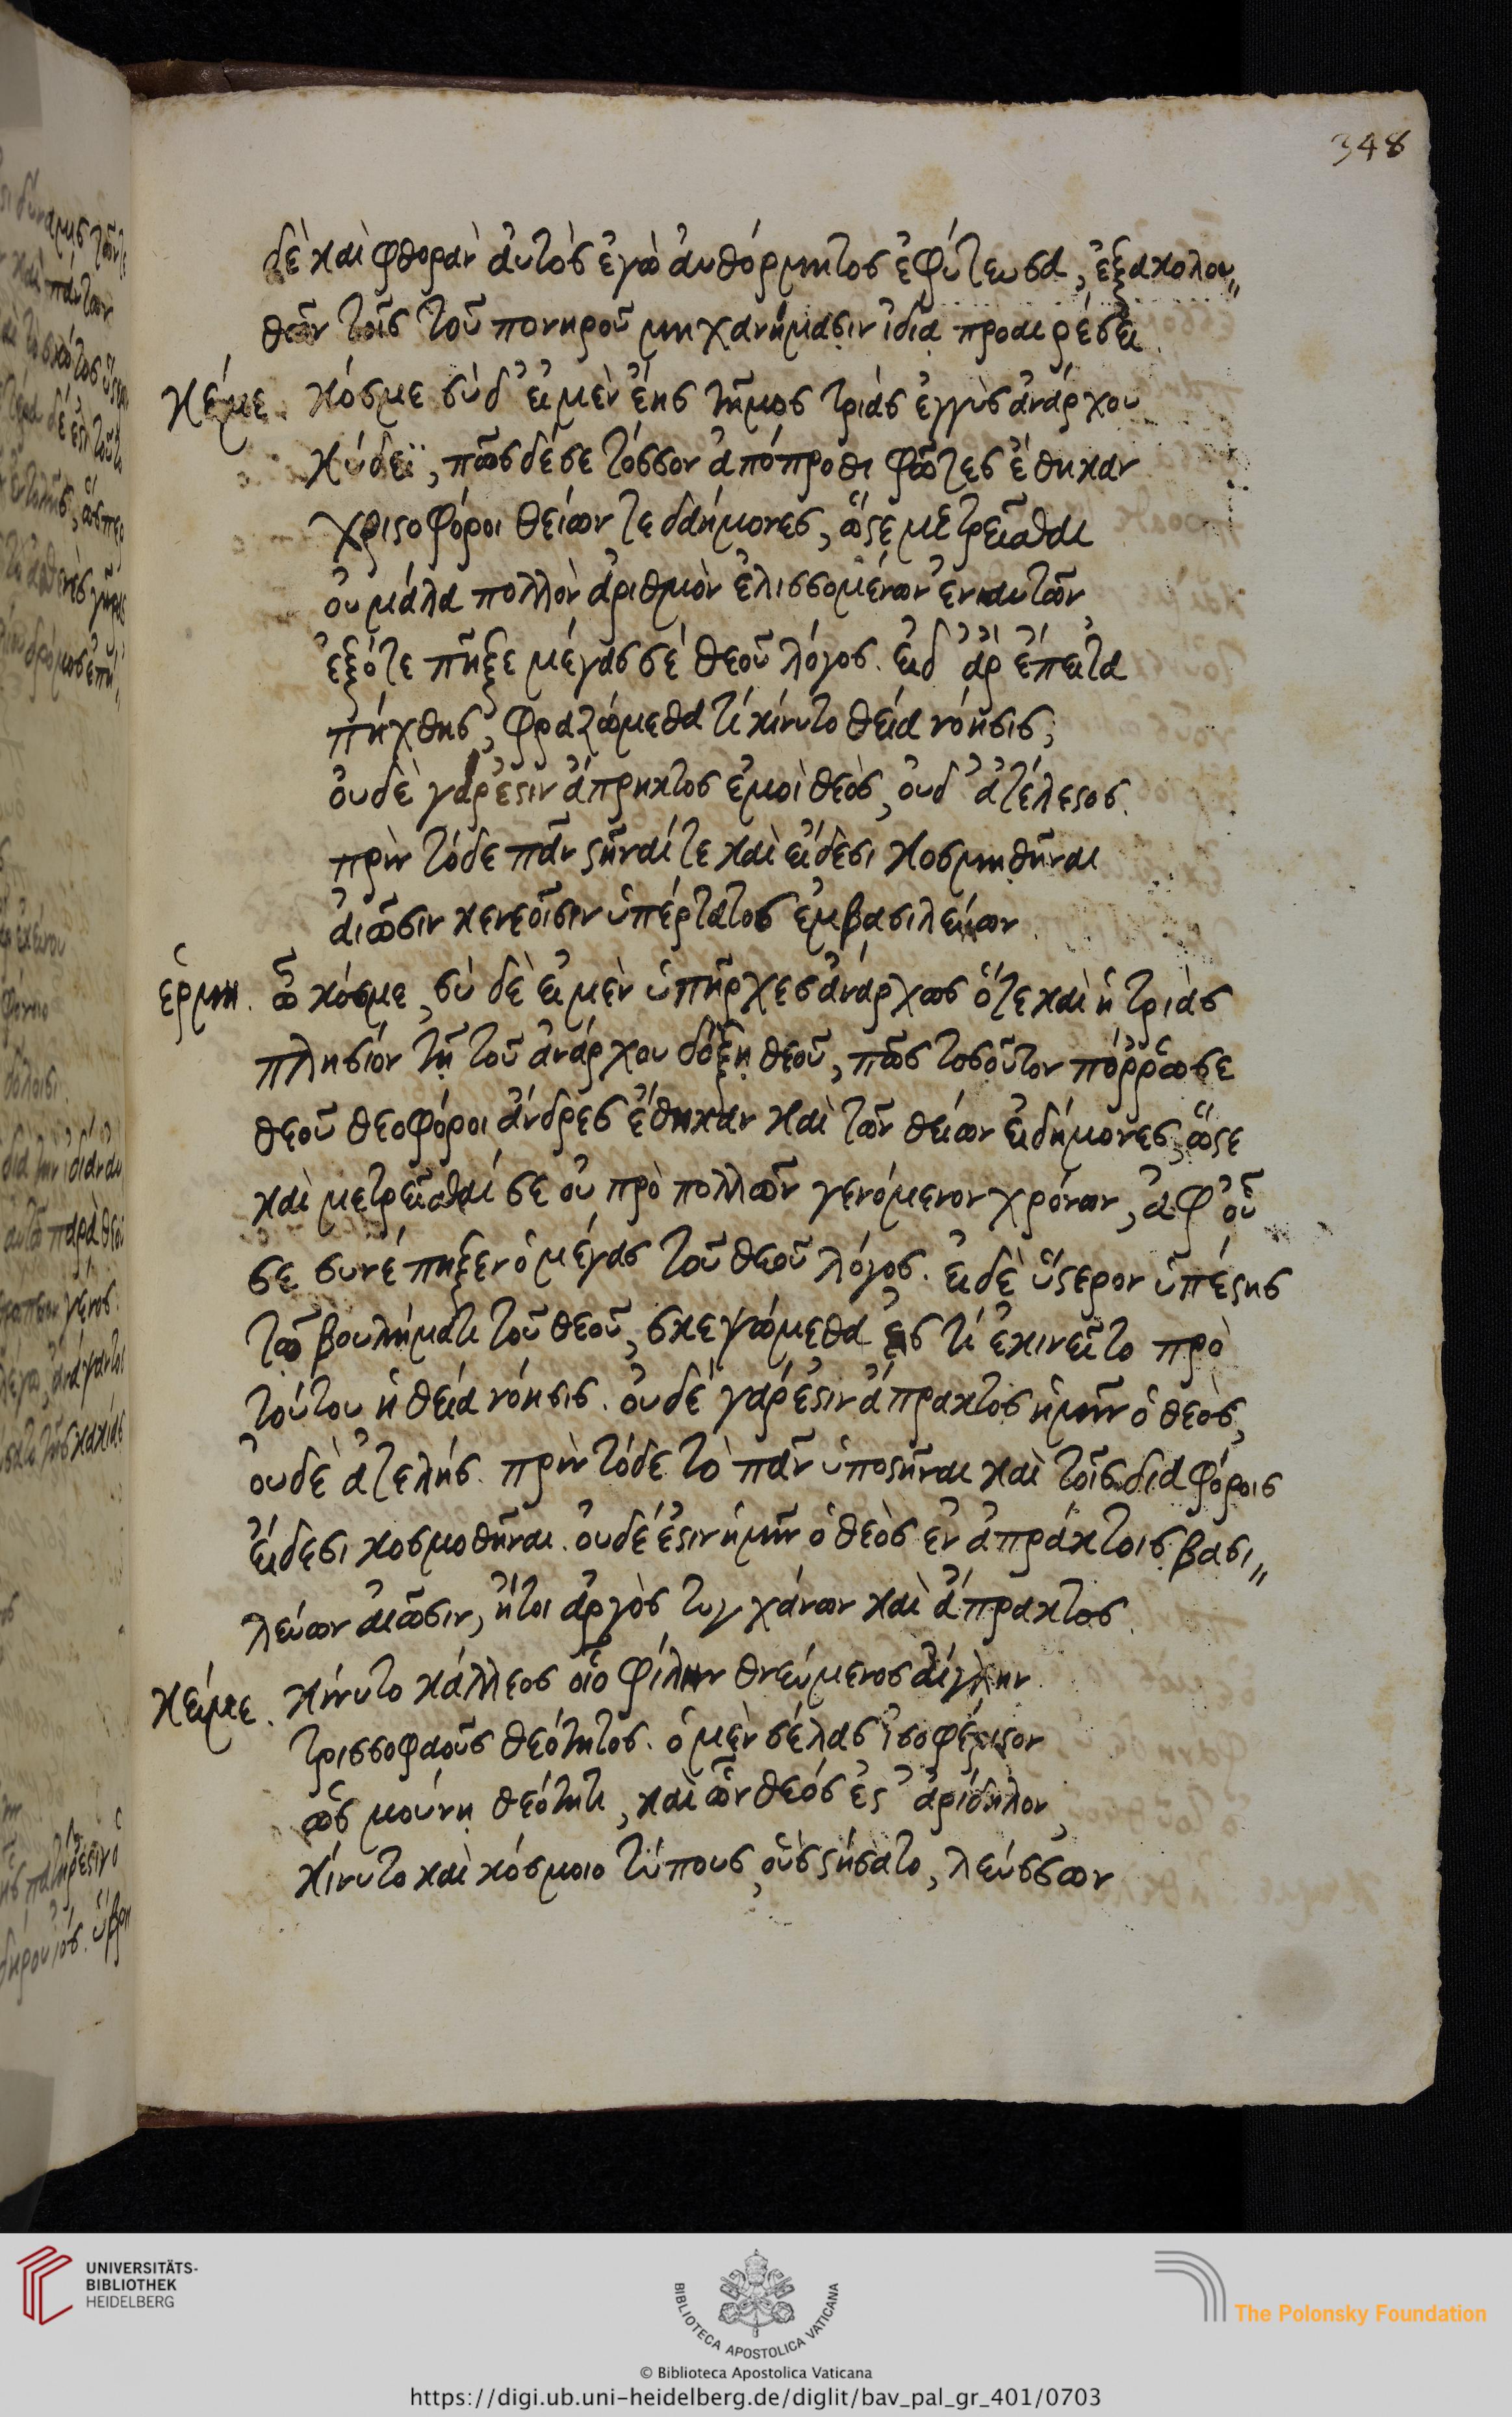 348
δὲ καὶ φθορὰν ἀυτὸς ἐγὼ ἀυθόρμητος ἐφύτευσα, ἐξακολου"
θῶν τοῖς τοῦ πονηροῦ μηχανήμασιν ἰδίᾳ προαιρέσει.
κείμε. κόσμε σὺ δ' εἰ μὲν ἔης τῆμος τριὰς ἐγγὺς ἀνάρχου
κύδεϊ, πῶς δέ σε τόσσον ἀπόπροθι φῶτες ἔθηκαν
χριστοφόροι θείων τε δαήμονες, ὥστε μετρεῖσθαι
ὀυ μάλα πολλὸν ἀριθμὸν ἑλισσομένων ἐνιαυτῶν
ἐξότε πῆξε μέγας σὲ θεοῦ λόγος. εἰ δ' ἂρ ἔπειτα
πήχθης, φραζώμεθα τί κίνυτο θεία νόησις;
ὀυδὲ γάρ ἐστιν ἄπρηκτος ἐμοὶ θεὸς, ὀυδ' ἀτέλεστος.
πρὶν τόδε πᾶν στῆναί τε καὶ εἴδεσι κοσμηθῆναι
ἀιῶσιν κενεοῖσιν ὑπέρτατος ἐμβασιλεύων.
ἑρμη. ὦ κόσμε, σὺ δὲ εἰ μὲν ὑπῆρχες ἀνάρχως ὅτε καὶ ἡ τριὰς
πλησίον τῇ τοῦ ἀνάρχου δόξῃ θεοῦ, πῶς τοσοῦτον πόρρω σε
θεοῦ θεοφόροι ἄνδρες ἔθηκαν καὶ τῶν θείων εἰδήμονες, ὥστε
καὶ μετρεῖσθαί σε ὀυ πρὸ πολλῶν γενόμενον χρόνων, ἀφ' οὗ
σε συνέπηξεν ὁ μέγας τοῦ θεοῦ λόγος. εἰ δὲ ὕστερον ὑπέστης
τῷ βουλήματι τοῦ θεοῦ, σκεψώμεθα ἐς τί ἐκινεῖτο πρὸ
τούτου ἡ θεία νόησις. ὀυδέ γάρ ἐστιν ἄπρακτος ἡμῖν ὁ θεὸς,
ὀυδὲ ἀτελής. πρὶν τόδε τὸ πᾶν ὑποστῆναι καὶ τοῖς διαφόροις
εἴδεσι κοσμοθῆναι. ὀυδέ ἐστιν ἡμῖν ὁ θεὸς ἐν ἀπράκτοις βασι"
λεύων ἀιῶσιν, ἤτοι ἀργὸς τυγχάνων καὶ ἄπρακτος.
κείμε. κίνυτο κάλλεος οἷο φίλην θνεύμενος ἀίγλην.
τρισσοφαοῦς θεότητος. ὁ μὲν σέλας ἰσοφέριστον
ὡς μούνῃ θεότητι, καὶ ὧν θεός ἐστ' ἀρίδηλον,
κίνυτο καὶ κόσμοιο τύπους, οὓς στήσατο, λεύσσων
UNIVERSITÄTS-
BIBLIOTHEK
HEIDELBERG
BIBLIOTECA APOSTOLICA VATICANA
The Polonsky Foundation
© Biblioteca Apostolica Vaticana
https://digi.ub.uni-heidelberg.de/diglit/bav_pal_gr_401/0703